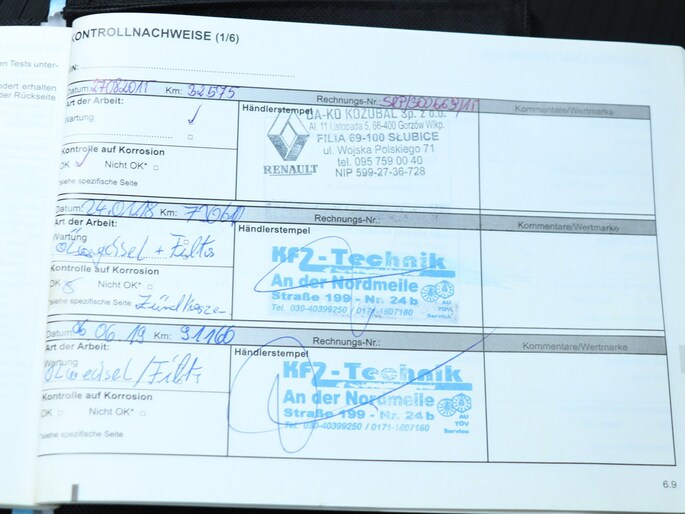 KONTROLLNACHWEISE (1/6)
en Tests unter-
ndert erhalten
der Rückseite
Datum: 27082015 Km: 32575 Rechnungs-Nr. Kommentare/Wertmarke
Art der Arbeit:
Wartung
Kontrolle auf Korrosion
OK Nicht OK*
*siehe spezifische Seite
Händlerstempel
DA-KO KOZUBAL Sp. z o.o.
Al. 11 Listopada 5, 66-400 Gorzów Wlkp.
FILIA 69-100 SŁUBICE
ul. Wojska Polskiego 71
tel. 095 759 00 40
NIP 599-27-36-728
RENAULT
Datum: 24.01.18 Km: Rechnungs-Nr.: Kommentare/Wertmarke
Art der Arbeit:
Wartung
Ölwechsel + Filter
Kontrolle auf Korrosion
OK Nicht OK*
*siehe spezifische Seite
Zündkerzen
Händlerstempel
KfZ-Technik
An der Nordmeile
Straße 199 - Nr. 24b
Tel. 030-40399250 / 0171-1607180
AU
TÜV
Service
Datum: 06 06.19 Km: 91160 Rechnungs-Nr.: Kommentare/Wertmarke
Art der Arbeit:
Wartung
Ölwechsel/Filter
Kontrolle auf Korrosion
OK Nicht OK*
*siehe spezifische Seite
Händlerstempel
KfZ-Technik
An der Nordmeile
Straße 199 - Nr. 24b
Tel. 030-40399250 / 0171-1607180
AU
TÜV
Service
6.9